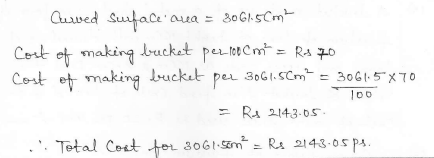 Curved Surface area = 3061.5Cm²
Cost of making bucket per 100Cm² = Rs 70
Cost of making bucket per 3061.5Cm² = 3061.5 × 70
100
= Rs 2143.05.
∴ Total Cost for 3061.5Cm² = Rs 2143.05 ps.